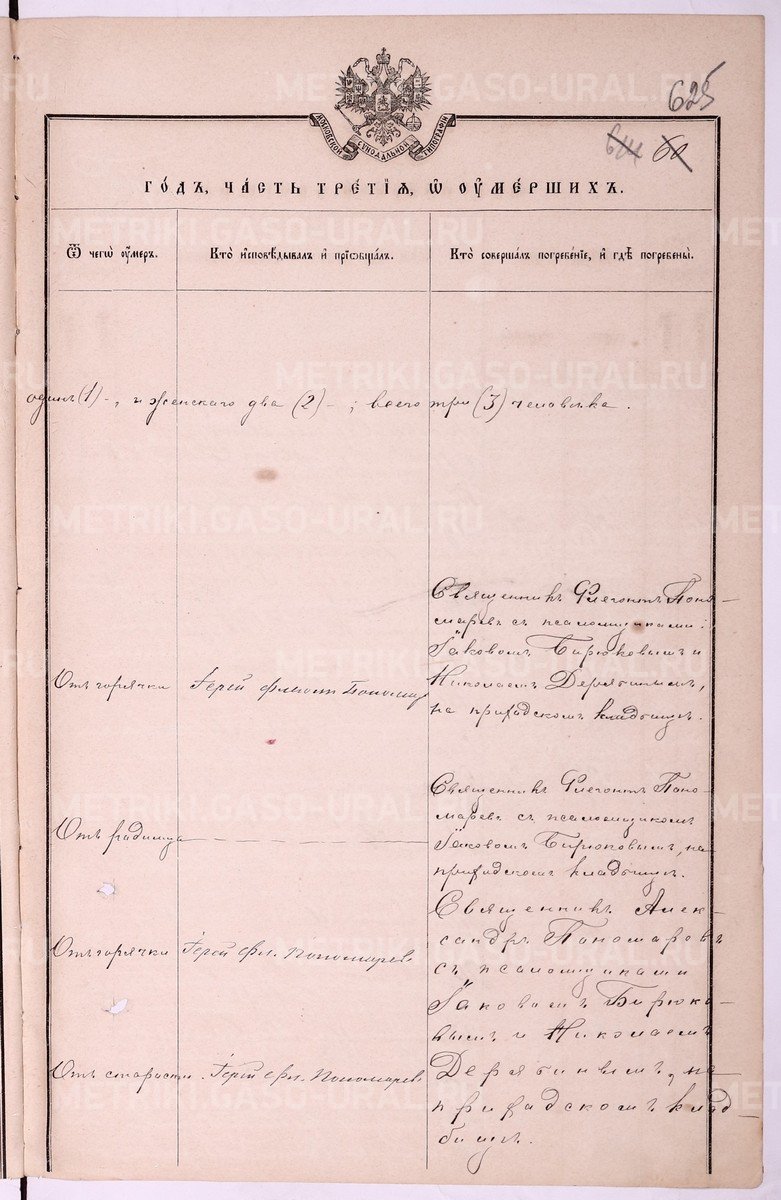 625
644 60
МОСКОВСКОЙ СѴНОДАЛЬНОЙ ТИПОГРАФІИ
ГО́ДЪ, ЧА́СТЬ ТРЕ́ТІѦ, Ѡ҆ ОУ҆МЕ́РШИХЪ.
Ѿ чегѡ̀ оу҆́меръ.
Кто̀ и҆сповѣ́дывалъ и҆ прїѡбща́лъ.
Кто̀ соверша́лъ погребе́нїе, и҆ гдѣ̀ погребены̀.
одинъ (1) -, и женскаго два (2) - ; всего три (3) человѣка.
Отъ горячки
Іерей Флегонт Пономар
Священникъ Флегонтъ Поно-
маревъ съ псаломщиками:
Іаковомъ Бирюковымъ и
Николаемъ Дерябинымъ,
на приходскомъ кладбищѣ.
Отъ родимца
Священникъ Флегонтъ Поно-
маревъ съ псаломщикомъ
Іаковомъ Бирюковымъ, на
приходскомъ кладбищѣ.
Отъ горячки
Іерей Фл. Пономарев
Священникъ Алек-
сандръ Пономаревъ
съ псаломщиками
Іаковомъ Бирюко-
вымъ и Николаемъ
Отъ старости.
Іерей Фл. Пономарев
Дерябинымъ, на
приходскомъ клад-
бищѣ.
METRIKI.GASO-URAL.RU